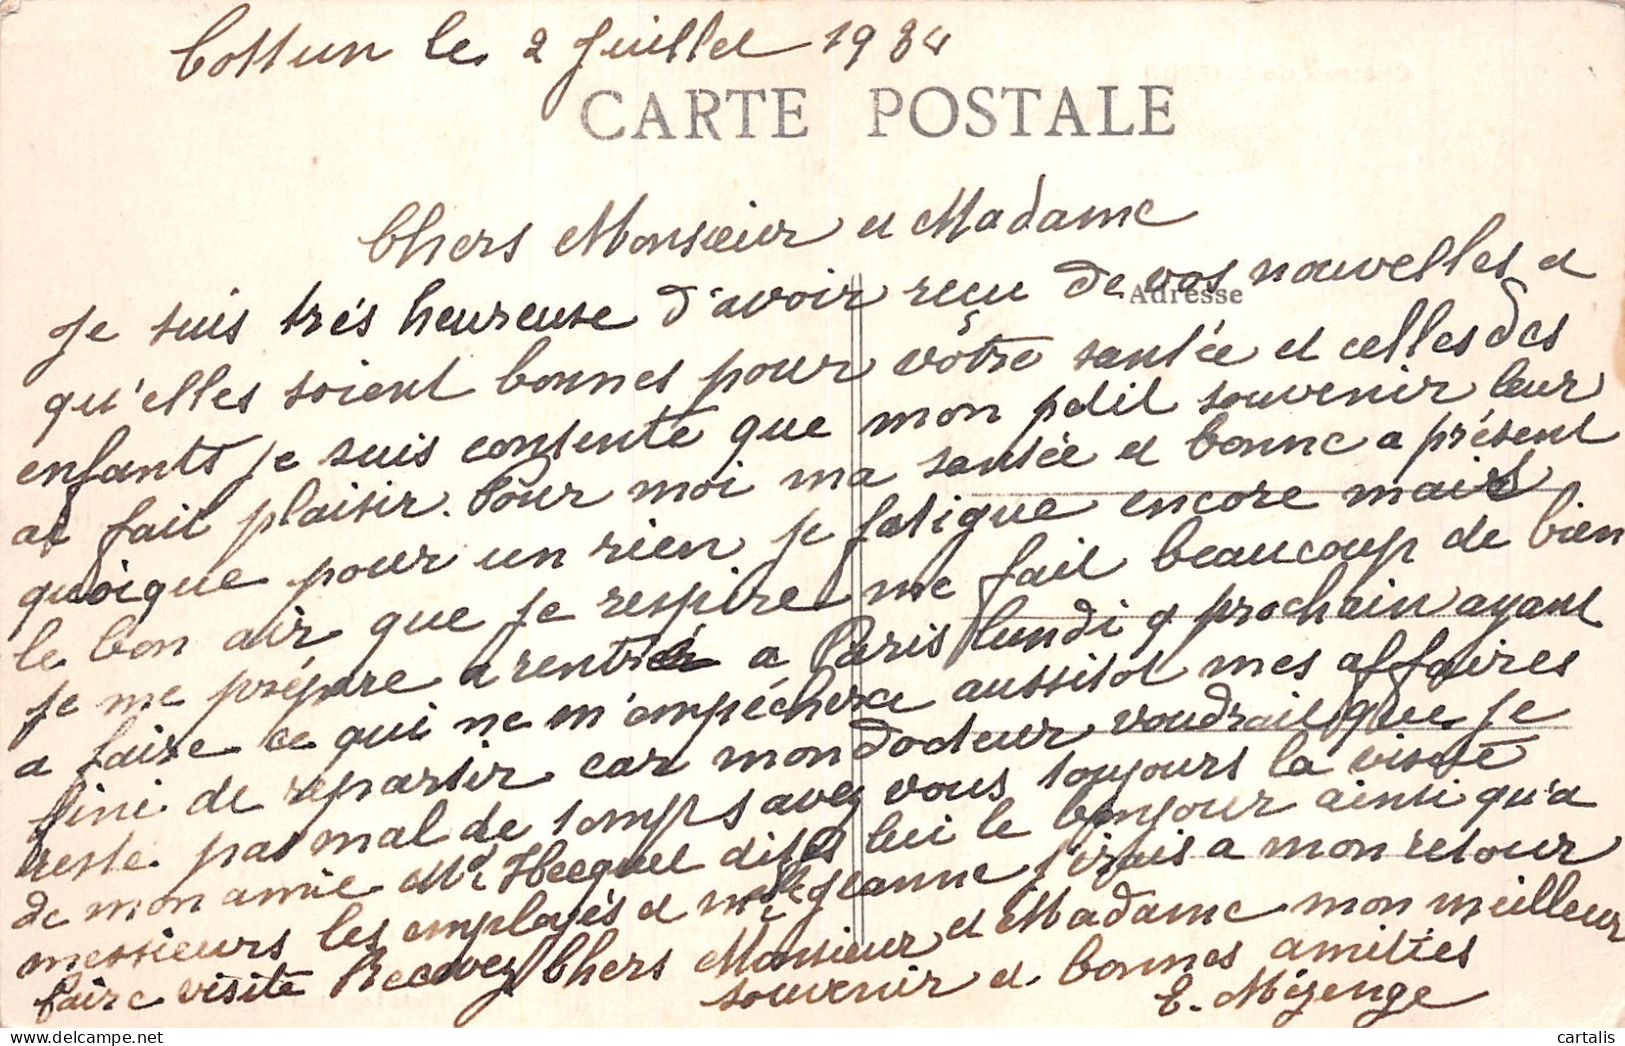 Cottun le 2 Juillet 1934
CARTE POSTALE
Chers Monsieur et Madame
Adresse
Je suis trés heureuse d'avoir reçu de vos nouvelles et
qu'elles soient bonnes pour vôtre santée et celles des
enfants je suis contente que mon petit souvenir leur
ai fait plaisir. Pour moi ma santée et bonne a présent
quoique pour un rien je fatigue encore mais
le bon air que je respire me fait beaucoup de bien
je me prépare a rentré a Paris lundi 9 prochain ayant
a faire ce qui ne m'empéchera aussitot mes affaires
fini de repartir car mon docteur voudrait que je
reste pas mal de temps avez vous toujours la visite
de mon amie Md Hecquet dites lui le bonjour ainsi qu'a
messieurs les employés et melle Jeanne j'irais a mon retour
faire visite Recevez Chers Monsieur et Madame mon meilleur
souvenir et bonnes amitiés
E. Mézenge
cartalis